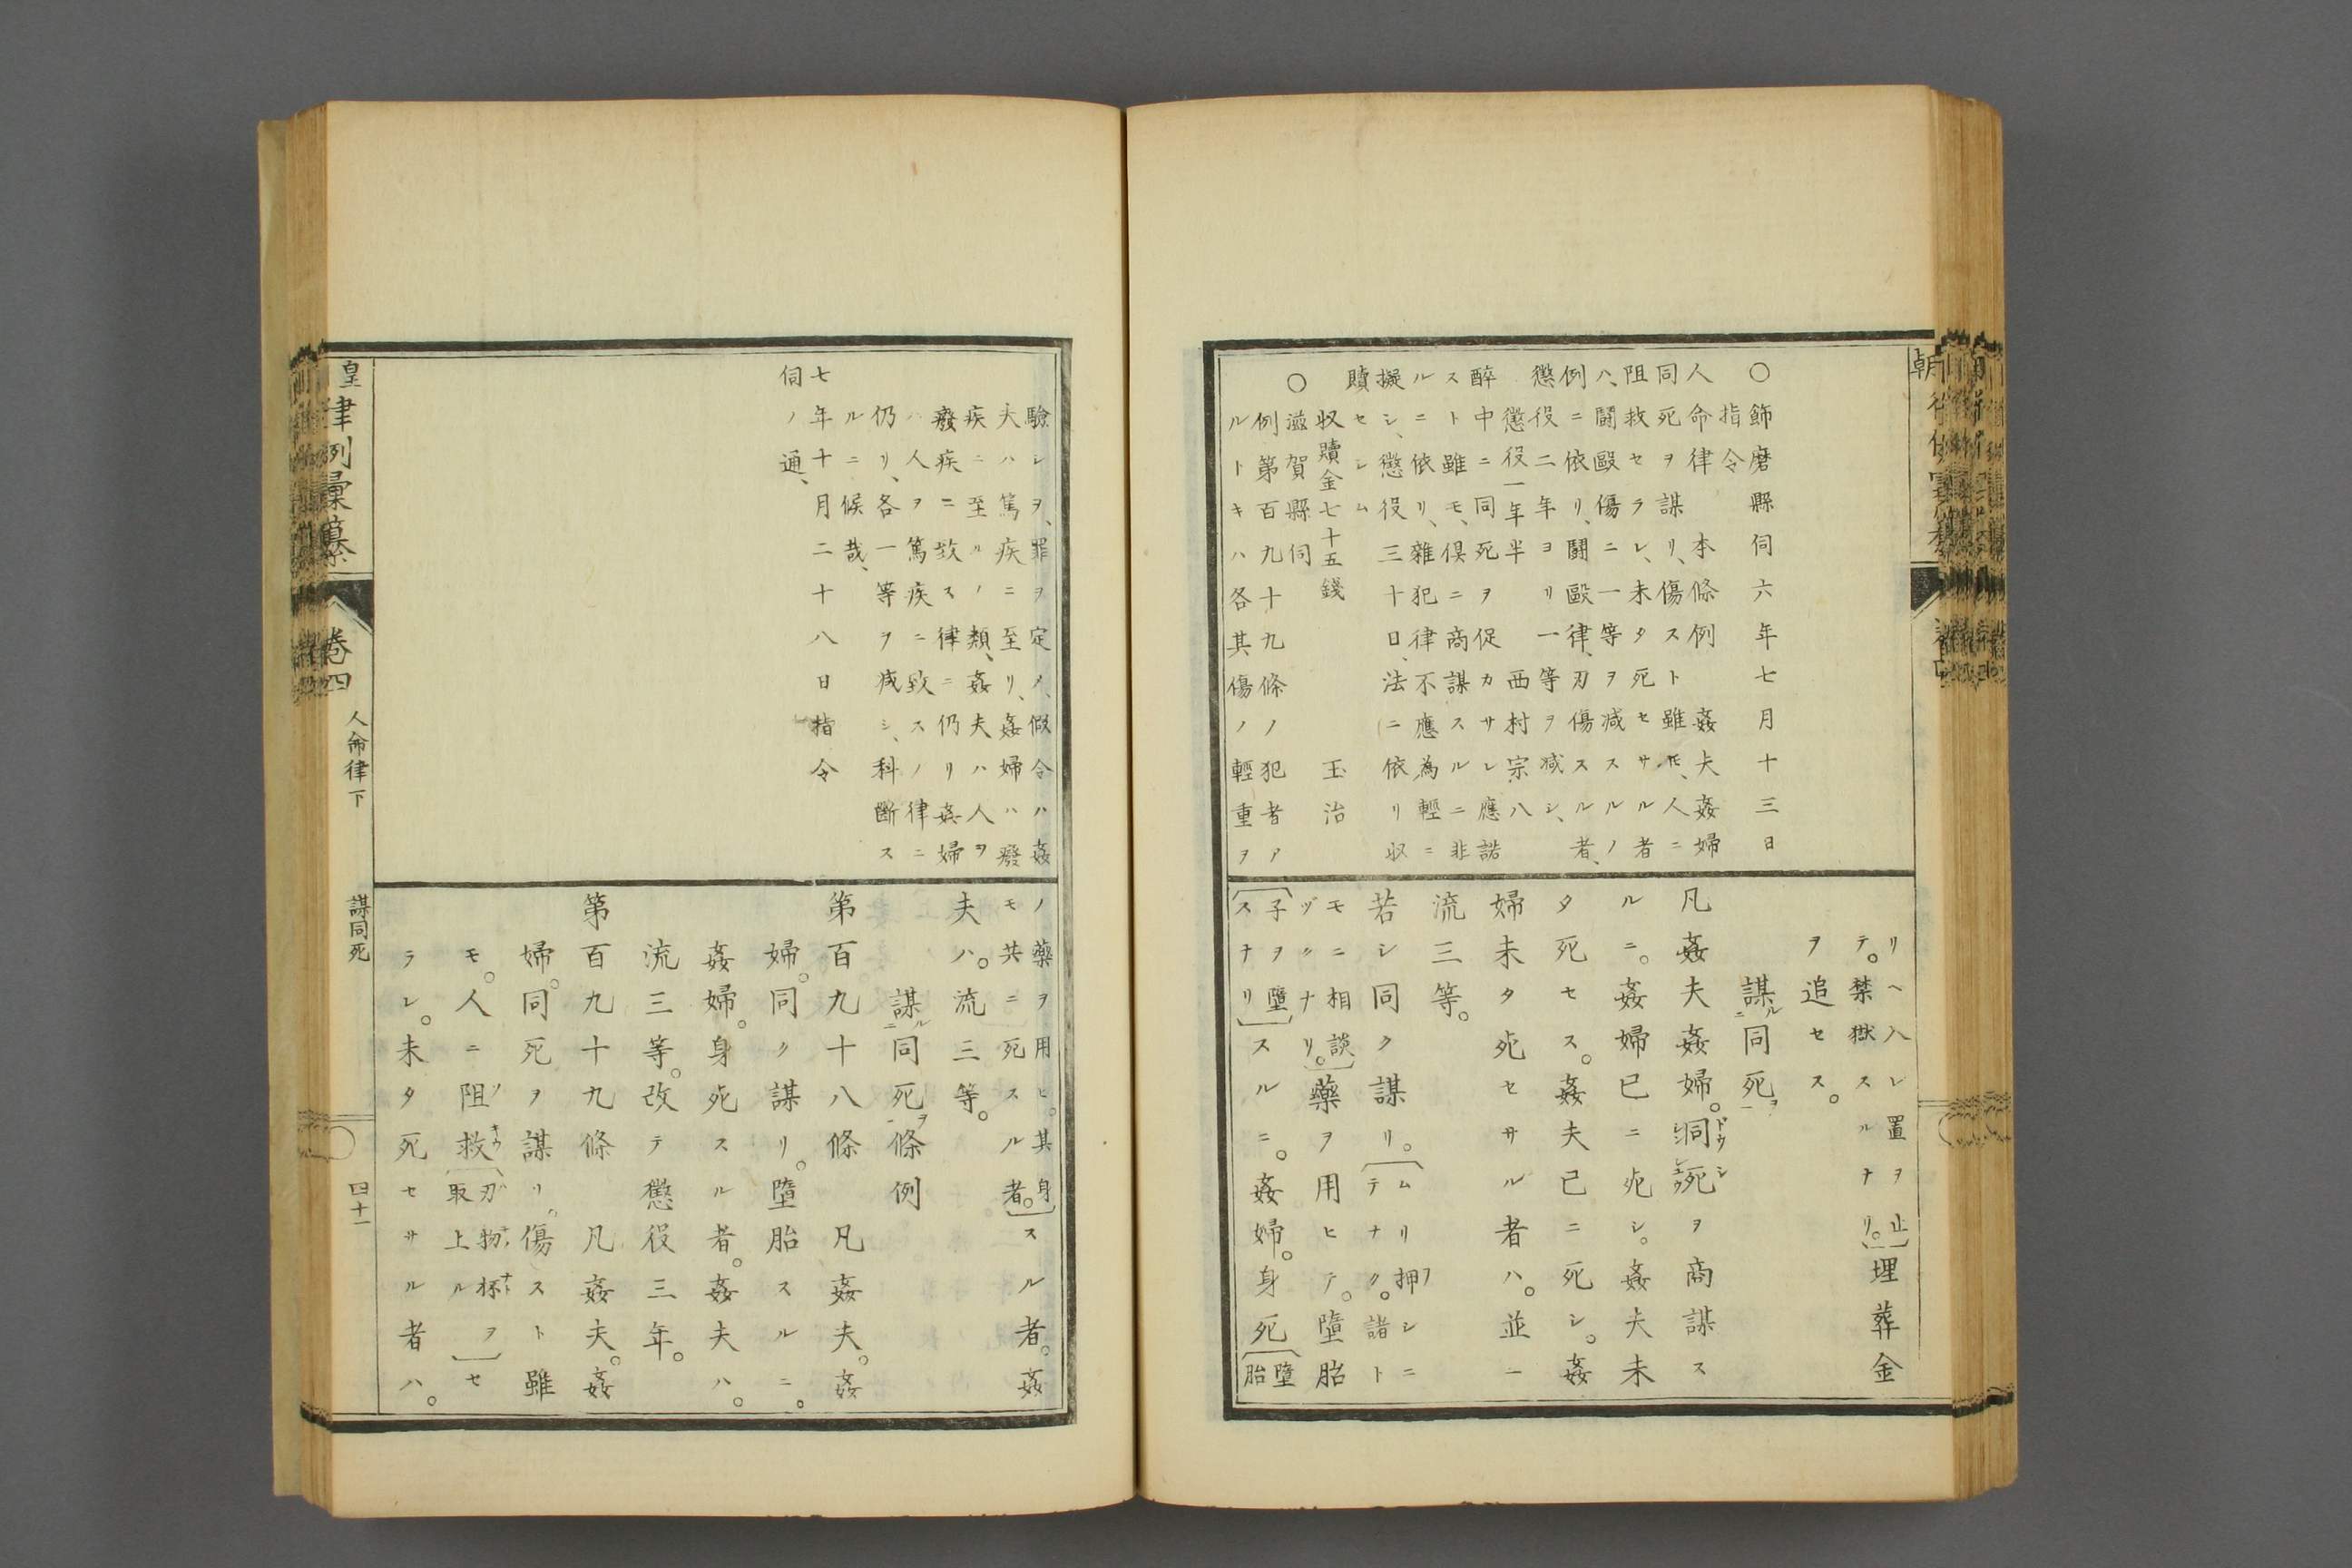 ○飾磨縣伺六年七月十三日
指令
人命律　本條例　姦夫姦婦
同死ヲ謀リ、傷スト雖モ、人ニ
阻救セラレ、未タ死セサル者
ハ、鬪毆傷ニ一等ヲ減スルノ
例ニ依リ、鬪毆律、刃傷スル者、
懲役二年ヨリ一等ヲ減シ、
懲役一年半　西村宗八
醉中ニ同死ヲ促カサレ應諾
スト雖モ、倶ニ商謀スルニ非
ルニ依リ、雜犯律不應為輕ニ
擬シ、懲役三十日、法ニ依リ収
贖セシム
収贖金七十五錢　玉治
○滋賀縣伺
例第百九十九條ノ犯者ア
ルトキハ各其傷ノ輕重ヲ
リヘ入レ置ヲ止
テ。禁獄スルナリ。〕埋葬金
ヲ追セス。
謀ルニ同死ヲ一
凡姦夫姦婦。同死ヲ商謀ス
ルニ。姦婦已ニ死シ。姦夫未
タ死セス。姦夫已ニ死シ。姦
婦未タ死セサル者ハ。並ニ一
流三等。
若シ同ク謀リ。〔ムリヲ押シニ
テナク。諸ト
モニ相談
ヅクナリ。〕藥ヲ用ヒテ。墮胎
〔子ヲ墮
スナリ〕スルニ。姦婦。身死〔墮
胎
驗シヲ、罪ヲ定メ、假令ハ姦
夫ハ篤疾ニ至リ、姦婦ハ癈
疾ニ至ルノ類、姦夫ハ人ヲ
癈疾ニ致ス律ニ仍リ姦婦
ハ人ヲ篤疾ニ致スノ律ニ
仍リ、各一等ヲ減シ、科斷ス
ルニ候哉、
七年十月二十八日指令
伺ノ通、
ノ藥ヲ用ヒ。其身
モ共ニ死スル者。〕スル者。姦
夫ハ。流三等。
謀ルニ同死ヲ一條例
第百九十八條　凡姦夫。姦
婦。同ク謀リ。墮胎スルニ。
姦婦。身死スル者。姦夫ハ。
流三等。改テ懲役三年。
第百九十九條　凡姦夫。姦
婦。同死ヲ謀リ。傷スト雖
モ。人ニ阻救〔刃物杯ヲ
取上ル〕セ
ラレ。未タ死セサル者ハ。
皇律例彙纂　卷四　人命律下　謀同死　四十一